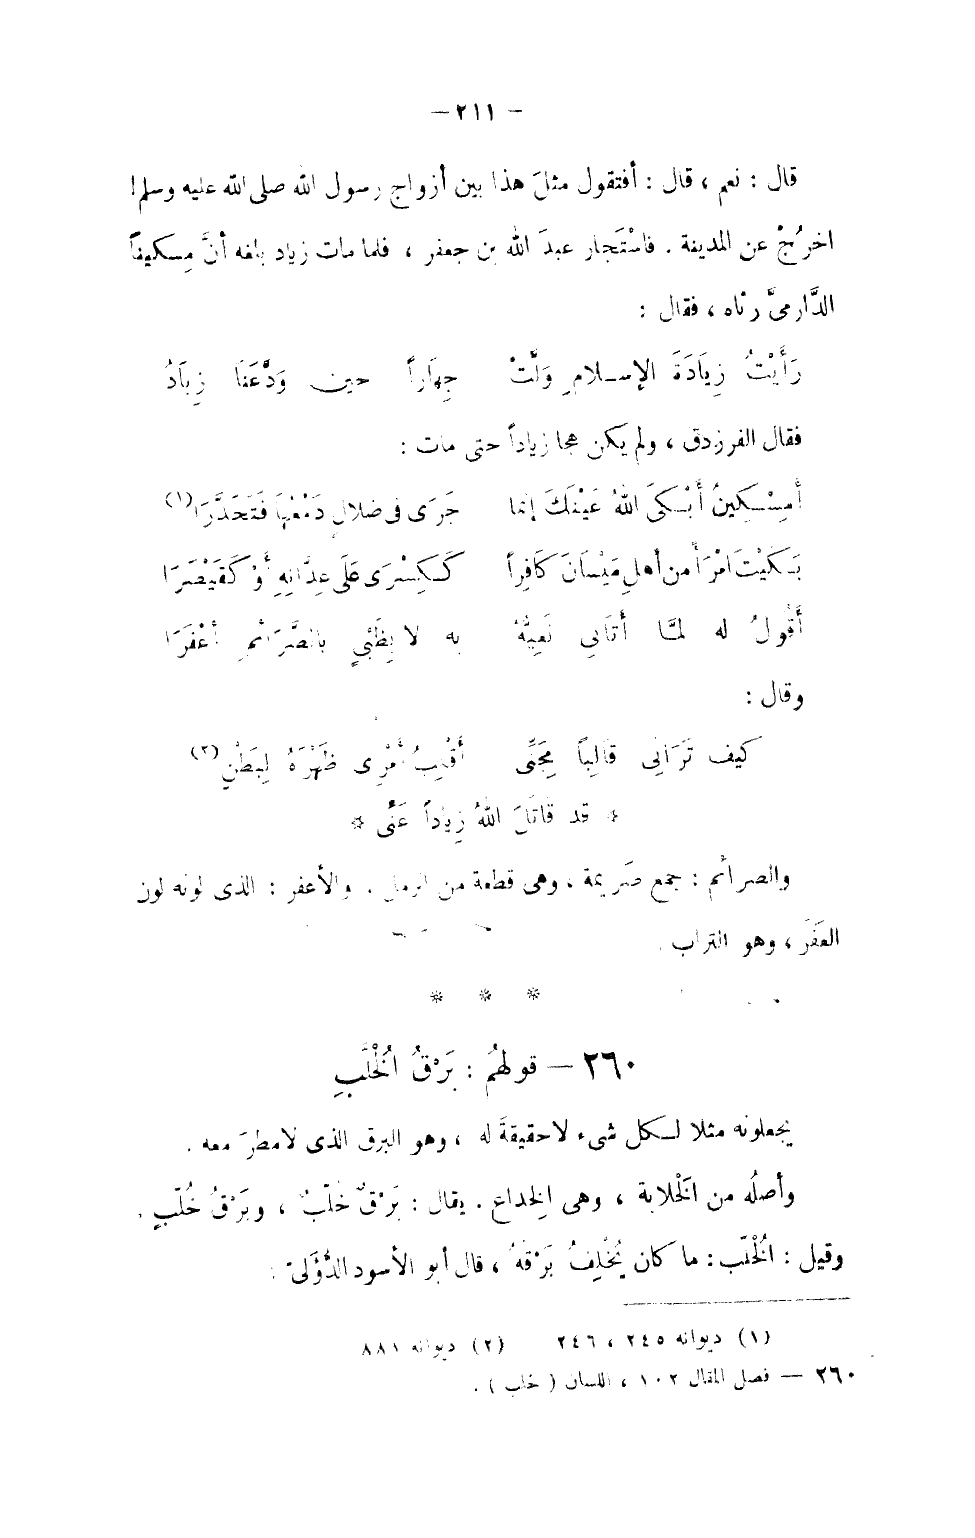 — ٢١١ —
قال : نعم ، قال : أفتقول مثلَ هذا بين أزواج رسول الله صلى الله عليه وسلم !
اخرُجْ عن المدينة . فاسْتَجار عبدَ الله بن جعفر ، فلما مات زياد بلغه أنَّ مِسكيناً
الدَّارمىَّ رثاه ، فقال :
رَأَيْتُ زِيَادَةَ الإسـلامِ وَلَّتْ جِهَاراً حين وَدَّعَنَا زِيَادُ
فقال الفرزدق ، ولم يكن هجا زياداً حتى مات :
أَمِسْـكِينُ أَبْـكَى اللهُ عَيْنَكَ إِنَّمَا جَرَى فى ضلالٍ دَمْعُهَا فَتَحَدَّرَا (١)
بَـكَيْتَ امْرَأً من أهلِ مَيْسَانَ كَافِراً كَـكِسْرَى عَلَى عِدَّانِهِ أَوْ كَقَيْصَرَا
أَقُولُ له لمَّـا أَتَانِى نَعِيُّهُ به لا بِظَبْيٍ بالصَّرَائمِ أعْفَرَا
وقال :
كيف تَرَانِى قَالِباً مِجَنِّى أَقْلِبُ أَمْرِى ظَهْرَهُ لِبَطْنِ (٢)
* قد قَاتَلَ اللهُ زِيَاداً عَنِّى *
والصرائم : جمع صَريمة ، وهى قطعة من الرمل . والأعفر : الذى لونه لون
العَفَر ، وهو التراب .
* * *
٢٦٠ — قولهُم : بَرْقُ الْخُلَّبِ
يجعلونه مثلا لـكل شىء لاحقيقةَ له ، وهو البرق الذى لامطرَ معه .
وأصلُه من الْخِلابة ، وهى الِخداع . يقال : بَرْقٌ خُلَّبٌ ، وبَرْقُ خُلَّبٍ .
وقيل : الْخُلَّب : ما كان يُخْلِفُ بَرْقهُ ، قال أبو الأسود الدُّؤَلىّ :
(١) ديوانه ٢٤٥ ، ٢٤٦ (٢) ديوانه ٨٨١
٢٦٠ — فصل المقال ١٠٢ ، اللسان ( خلب ) .